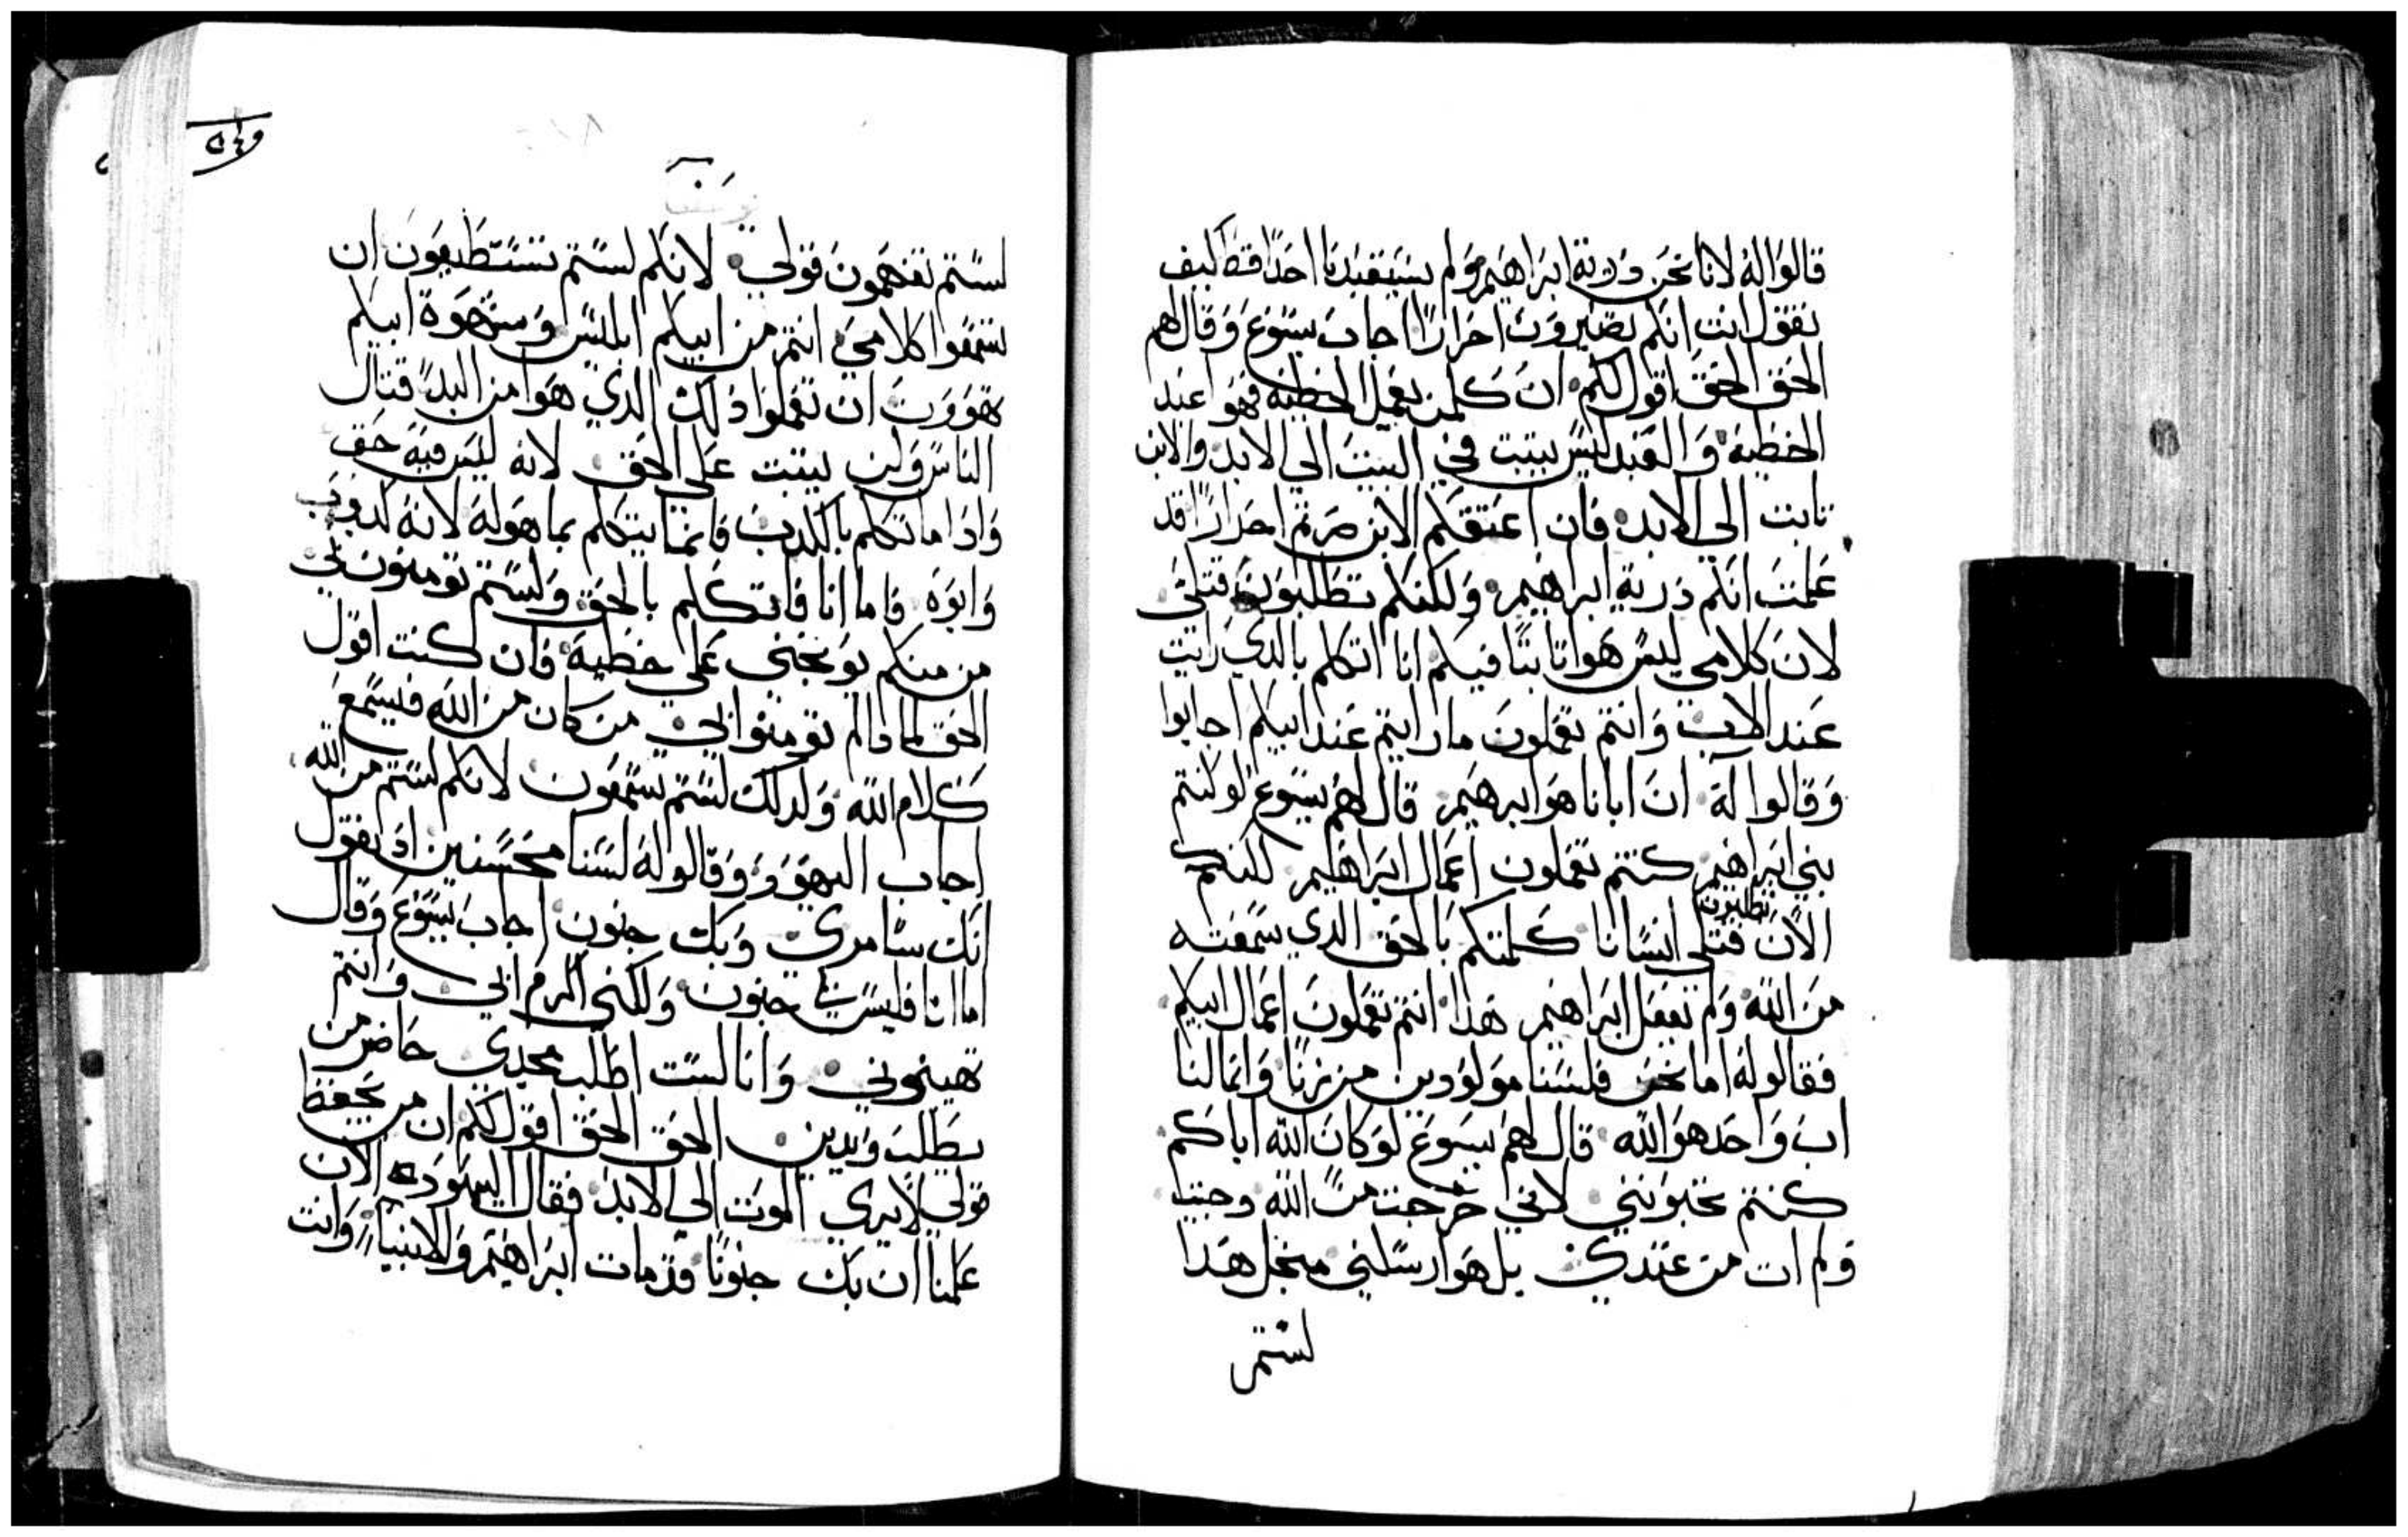 قالوا له لانا نحن درية ابراهيم ولم يستعبدنا احدا قط كيف
تقول انت انكم تصيرون احرارا اجاب يسوع وقال لهم
الحق الحق اقول لكم ان كلمن يعمل الخطية فهو اعبد
الخطية والعبد ليس يتبت في البيت الي الابد والابن
تابت الي الابد فان اعتقكم الابن صرتم احرارا قد
علمت انكم درية ابراهيم ولكنكم تطلبون قتلي
لان كلامي ليس هو اتابتا فيكم انا اتكلم بالدي رايت
عند الاب وانتم تعملون ما رايتم عند ابيكم اجابوا
وقالوا له ان ابانا هو ابرهيم قال لهم يسوع لو كنتم
بني ابراهيم كنتم تعملون اعمال ابراهيم لكنكم
تطلبون
الان قتلي انسانا كلمتكم بالحق الدي سمعته
من الله ولم تفعل ابراهيم هدا انتم تعملون اعمال ابيكم
فقالوله اما نحن فلسنا مولودين من زنا وانما لنا
اب واحد هو الله قال لهم يسوع لو كان الله اباكم
كنتم تحبونني لاني خرجت من الله وجيت
ولم ات من عندي بل هو ارسلني منجل هدا
لستم
لستم تفهمون قولي لانكم لستم تستطيعون ان
تسمعوا كلامي انتم من ابيكم ابليس وشهوة ابيكم
تهوون ان تعملوا دلك الدي هو من البدء قتال
الناس ولن يتبت علي الحق لانه ليس فيه حق
وادا ما تكلم بالكدب فانما يتكلم بما هوله لانه كدوب
وابوه فاما انا فاتكلم بالحق ولستم تومنون بي
من منكم يوبخني علي خطية فان كنت اقول
الحق لمادا لم تومنوا بي من كان من الله فليسمع
كلام الله ولدلك لستم تسمعون لانكم لستم من الله
اجاب اليهود وقالوا له لسنا محسنين اد نقول
انك سامري وبك جنون اجاب يسوع وقال
اما انا فليس بي جنون ولكني اكرم ابي وانتم
تهينوني وانا لست اطلب مجدي حاضر من
يطلب ويدين الحق الحق اقول لكم ان من يحفظ
قولي لا يري الموت الي الابد فقال اليهود الان
علمنا ان بك جنونا قد مات ابراهيم والانبياء وانت